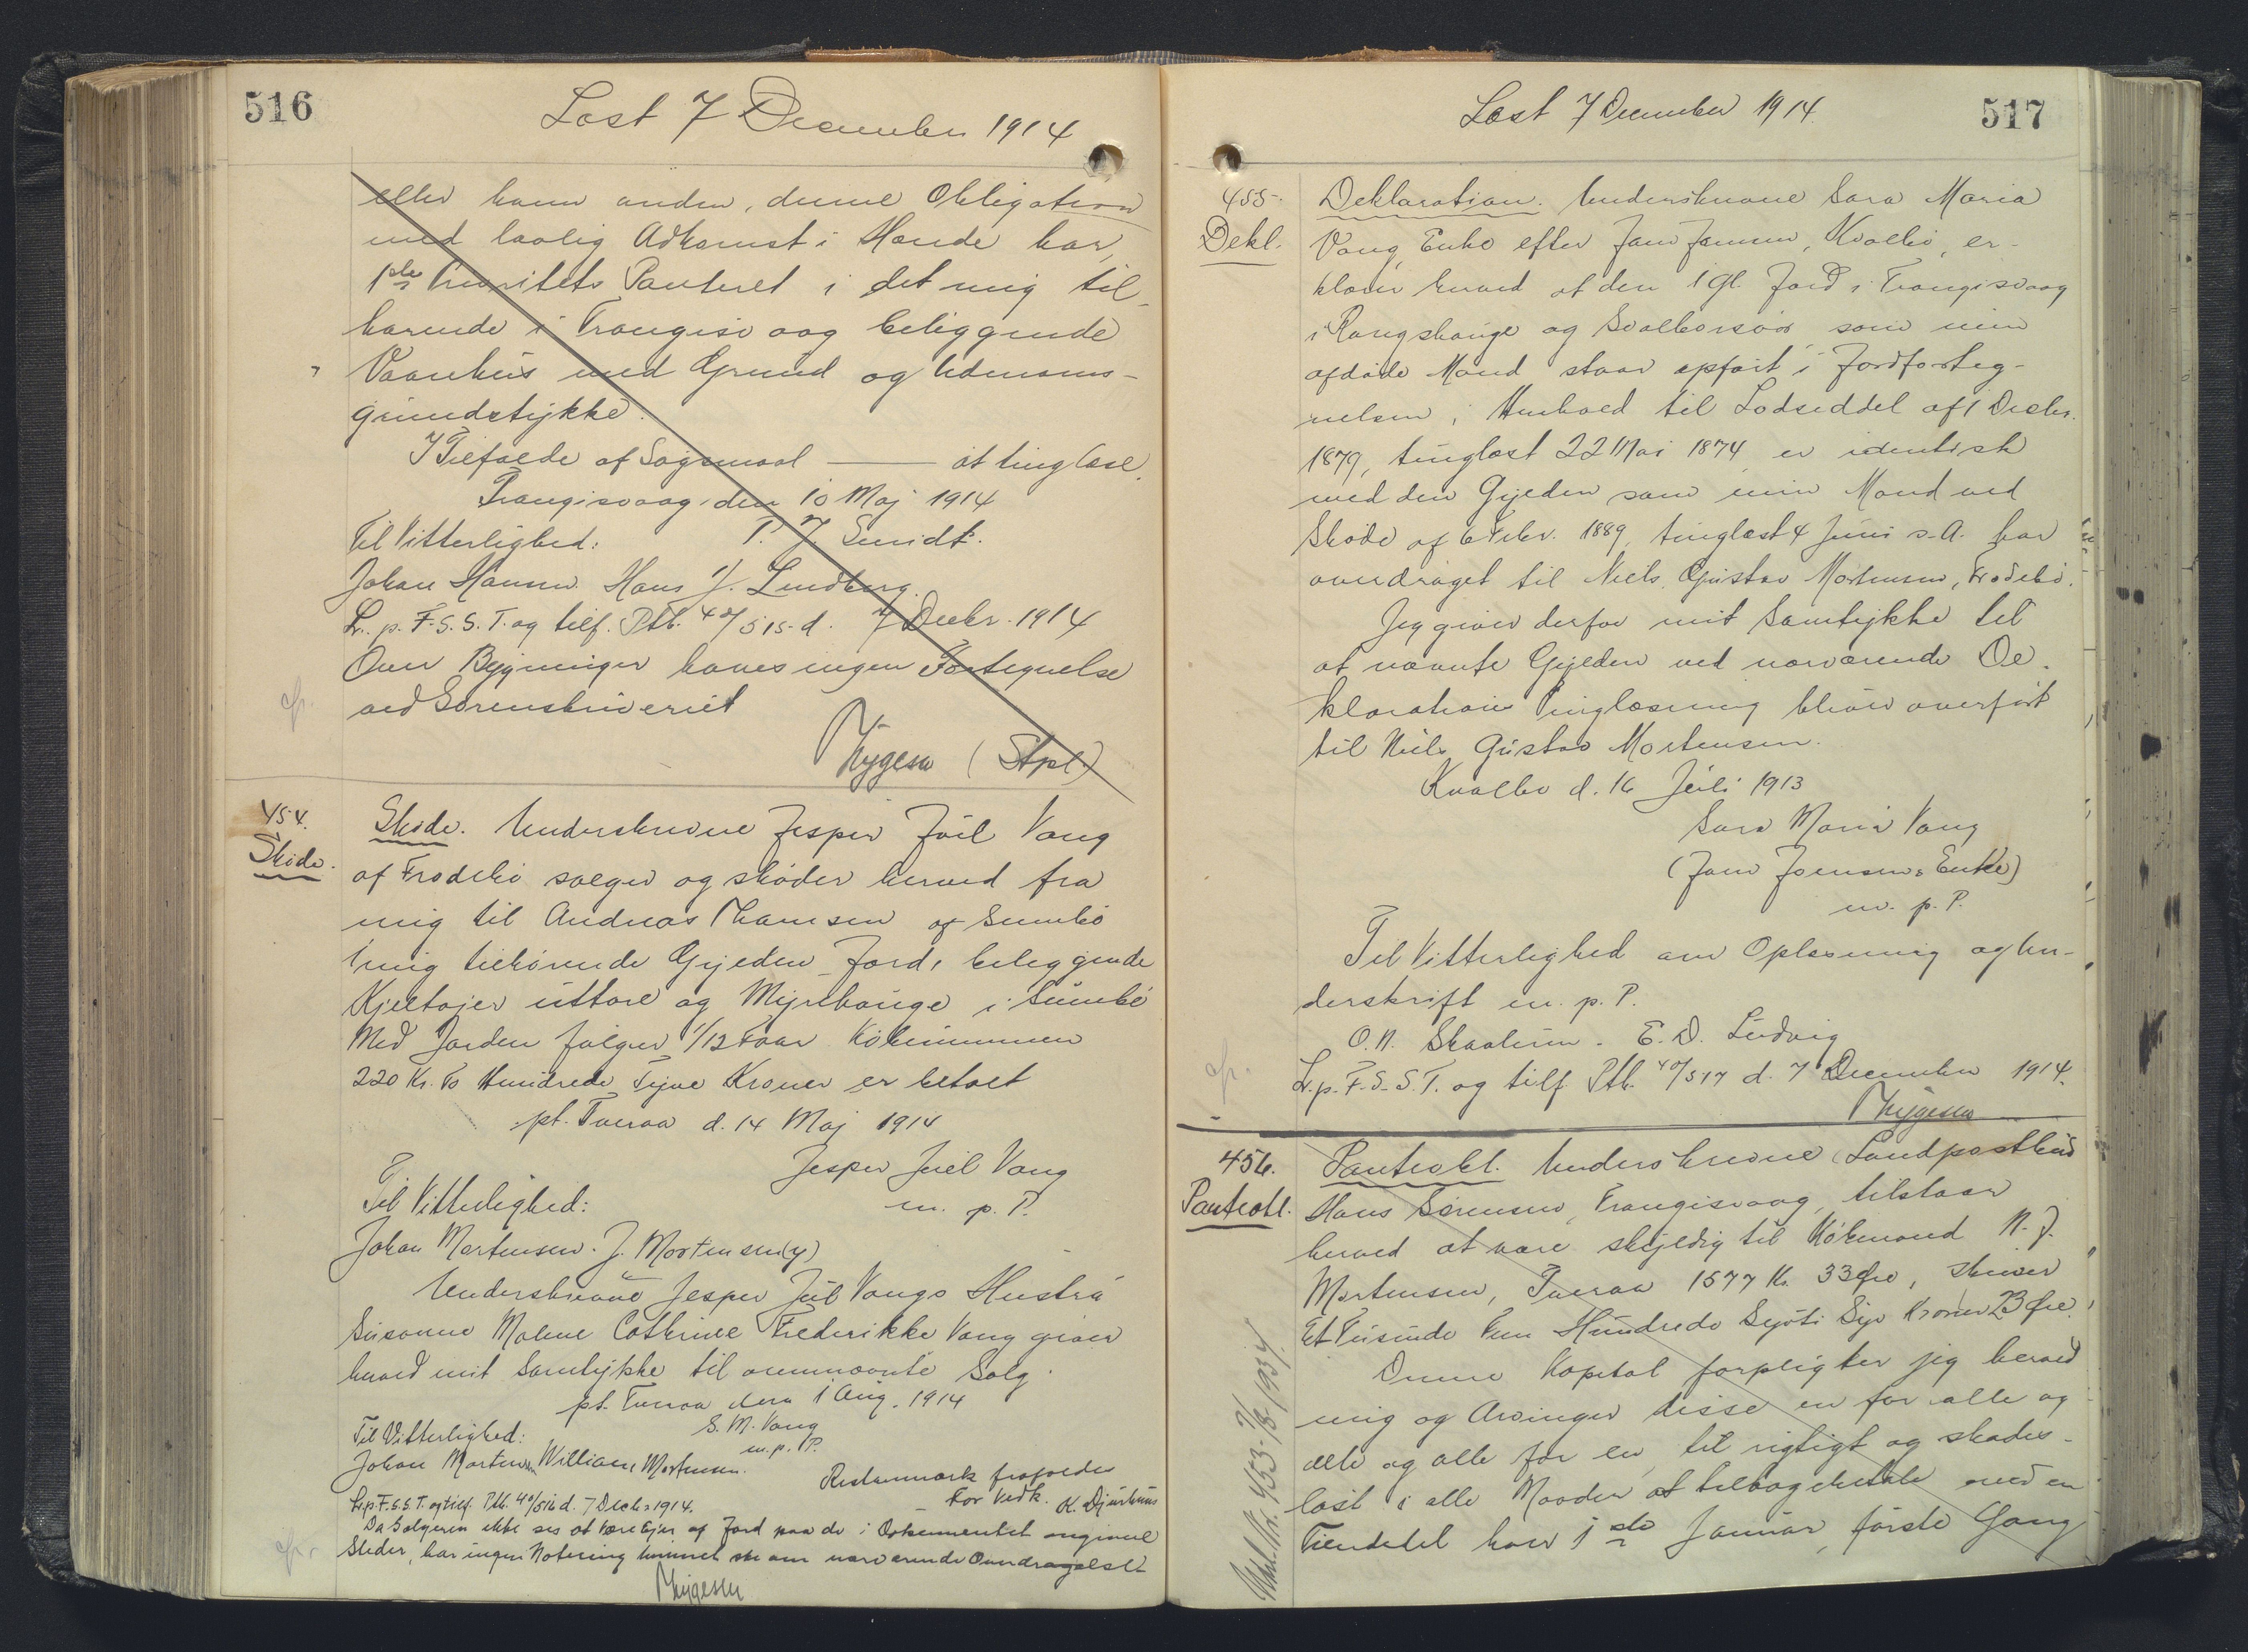 516
Læst 7 December 1914
eller hvem anden, denne Obligation
med lovlig Adkomst i Hænde har,
1ste Prioritets Panteret i det mig til-
hørende i Trangisvaag beliggende
Vaanhus med Grund og Udenoms-
grundstykke.
I Tilfælde af Søgsmaal — at tinglæse.
Trangisvaag, den 10 Maj 1914
Til Vitterlighed: P. J. Smidt.
Johan Hansen. Hans J. Lindberg.
Lr. p. F. S. S. T. og tilf. Ptb. 40/515 d. 7 Decbr. 1914
Over Bygninger haves ingen Fortegnelse
ved Sorenskriveriet
Thygesen (Stpl)
454.
Skøde.
Skøde. Underskrevne Jesper Juil Vang
af Frodebø sælger og skøder herved fra
mig til Andreas Thomsen af Sumbø
1 mig tilhørende Gylden Jord, beliggende
Kjeltajer uttare og Myrehauge i Sumbø
Med Jorden følger 1/12 Faar. Købesummen
220 Kr. To Hundrede Tyve Kroner er betalt
pt. Tveraa d. 14 Maj 1914
Jesper Juel Vang
m. p. P.
Til Vitterlighed:
Johan Mortensen. J. Mortensen(y)
Underskrevne Jesper Juil Vangs Hustru
Susanne Malene Cathrine Frederikke Vang giver
herved mit Samtykke til ommeldte Salg.
pt. Tveraa den 1 Aug. 1914
S. M. Vang
m. p. P.
Til Vitterlighed:
Johan Mortensen William Mortensen.
Restanmærk. frafaldes
For Vedk. K. Djurhuus
Lr. p. F. S. S. T. og tilf. Ptb. 40/516 d. 7 Decbr 1914.
Da Sælgeren ikke ses at være Ejer af Jord paa de i Dokumentet angivne
Steder, har ingen Notering kunnet ske om nærværende Overdragelse
Thygesen
Læst 7 December 1914
517
455
Dekl.
Deklaration. Underskrevne Sara Maria
Vang, Enke efter Jens Joensen, Kvalbø, er-
klærer herved at den 1 gl. Jord i Trangisvaag
i Rangshauge og som min
afdøde Mand staar opført i Jordforteg-
nelsen, i Henhold til Lodseddel af 1 Decbr.
1879, tinglæst 22 Mai 1874, er identisk
med den Gylden som min Mand ved
Skøde af 6 Febr. 1889, tinglæst 4 Juni s. A. har
overdraget til Niels Gustav Mortensen, Frodebø.
Jeg giver derfor mit Samtykke til
at nævnte Gylden ved nærværende De-
klarations Tinglæsning bliver overført
til Niels Gustav Mortensen.
Kvalbø d. 16 Juli 1913
Sara Maria Vang
(Jens Joensens Enke)
m. p. P.
Til Vitterlighed om Oplæsning og Un-
derskrift m. p. P.
O. N. Skaalum. E. D. Ludvig
Lr. p. F. S. S. T. og tilf. Ptb. 40/517 d. 7 December 1914.
Thygesen
456.
Panteobl.
Panteobl. Underskrevne Landpostbud
Hans Sørensen, Trangisvaag, tilstaar
herved at være skyldig til Købmand N. J.
Mortensen, Tveraa 1577 Kr. 33 Øre, skriver
Et Tusinde Fem Hundrede Syvti Syv Kroner 23 Øre.
Denne Kapital forpligter jeg herved
mig og Arvinger disse en for alle og
alle og alle for en, til rigtigt og skades-
løst i alle Maader at tilbagebetale med en
Tiendedel hver 1ste Januar, første Gang